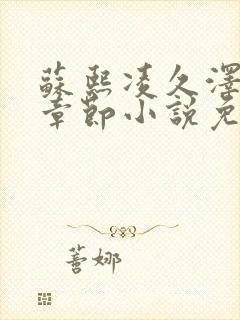 蘇熙凌久澤
章節小說免
蔷娜